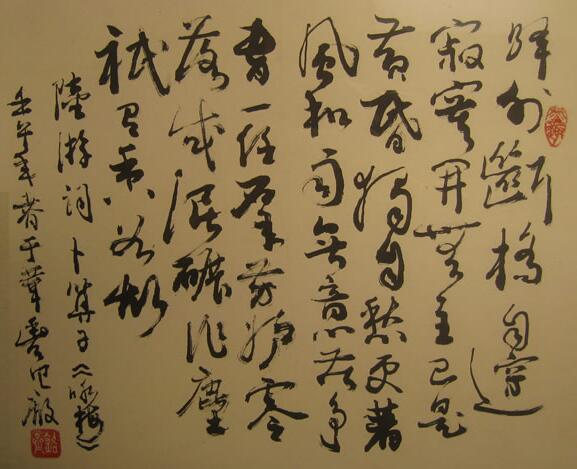 驛外斷橋邊
寂寞開無主已是
黄昏獨自愁更著
風和雨無意苦爭
春一任羣芳妒零
落成泥碾作塵
祇有香如故
陸游詞卜算子《咏梅》
壬午年春于